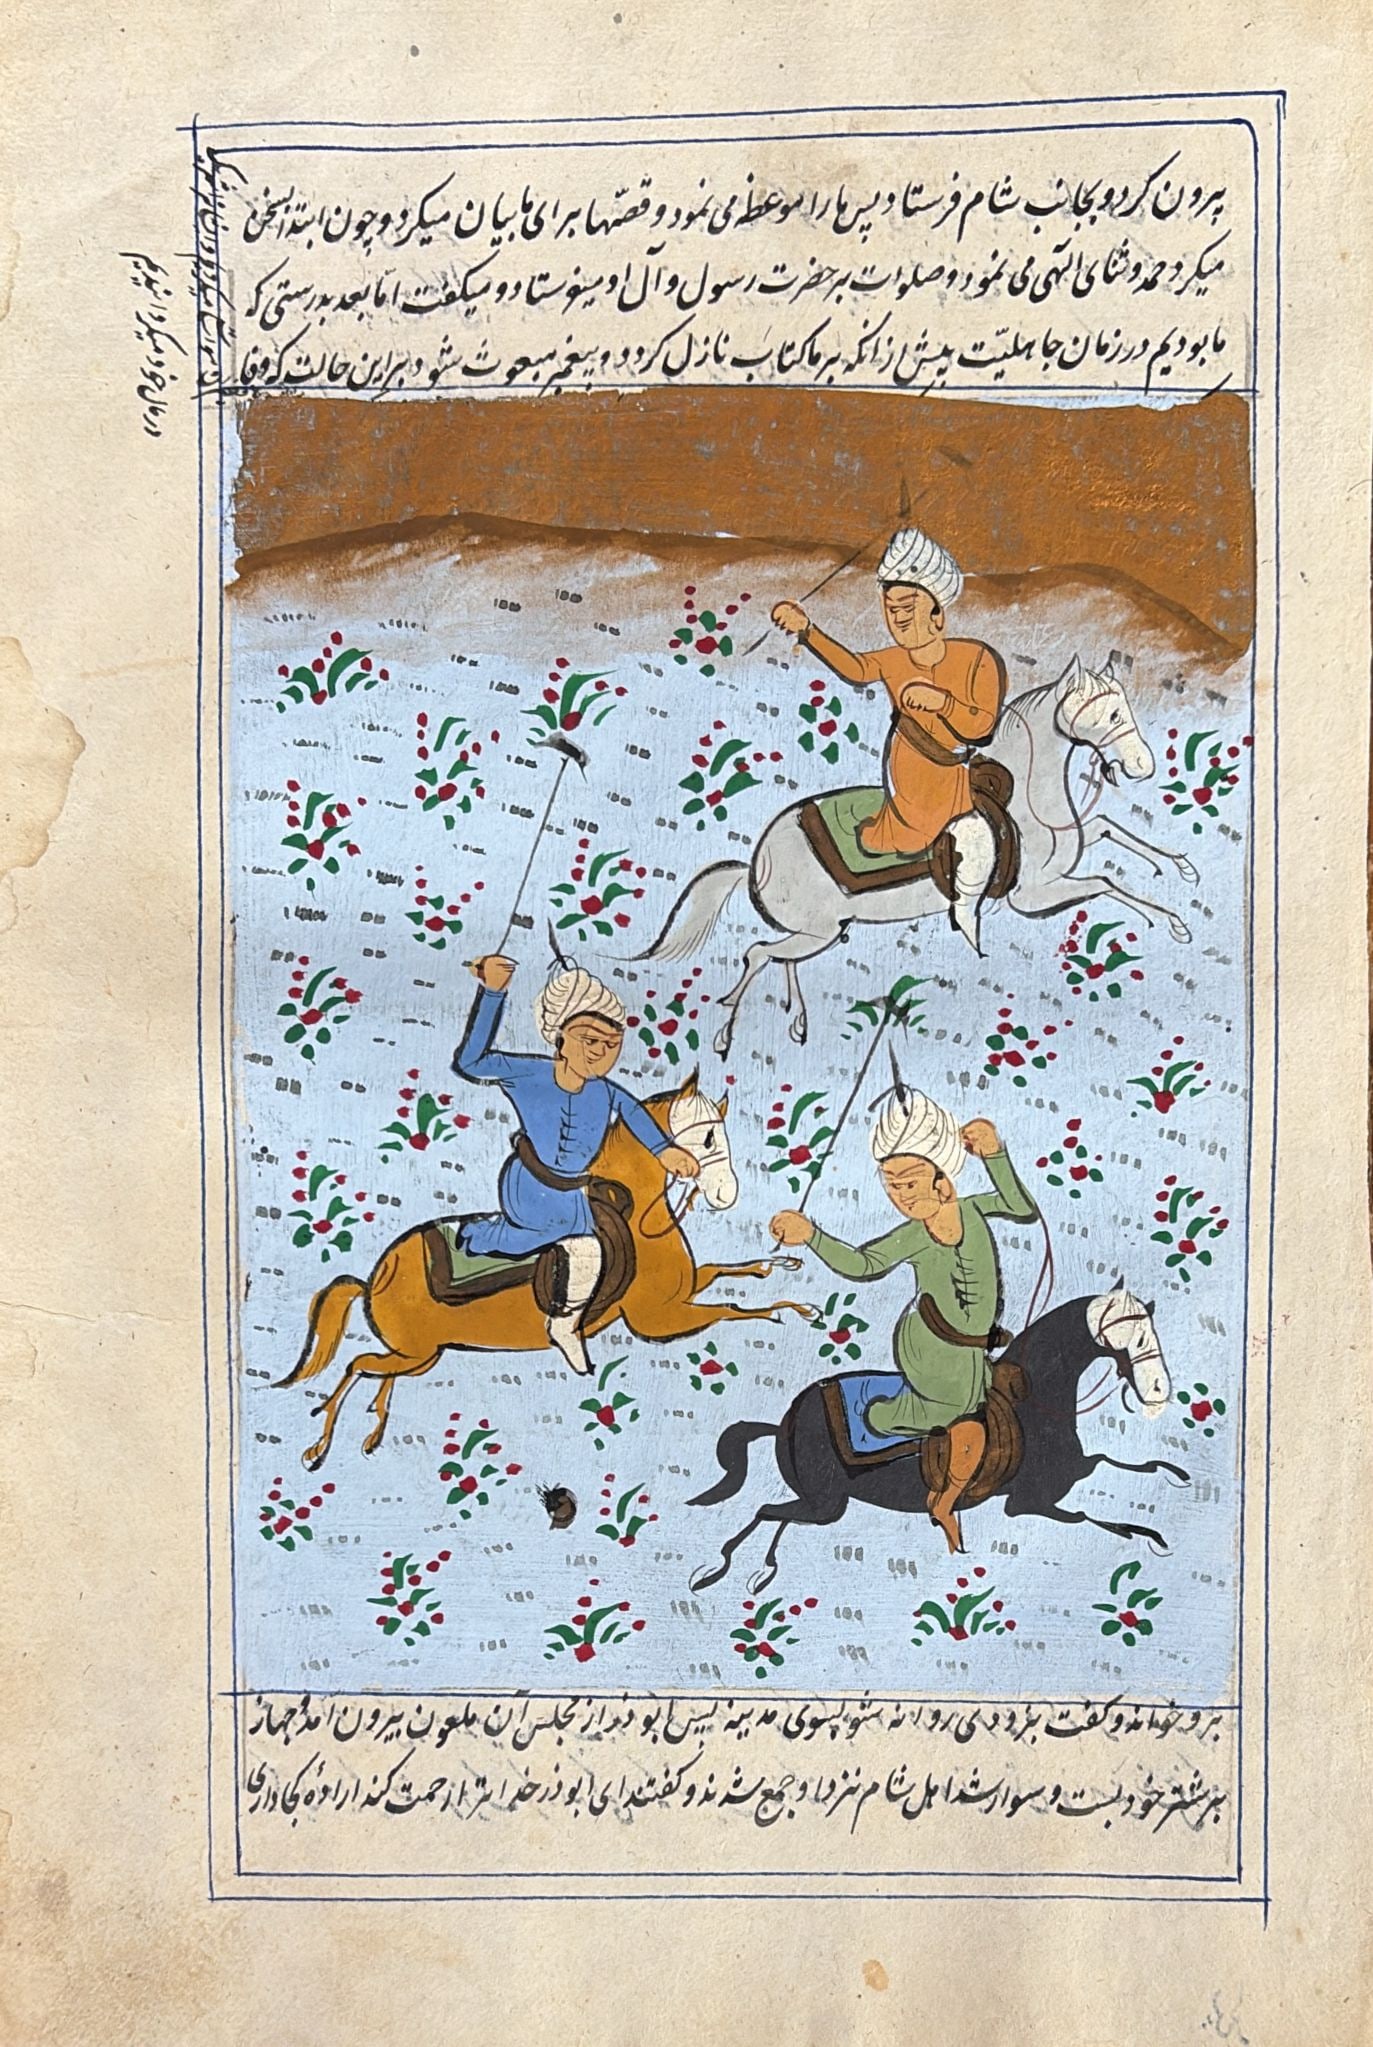 بیرون کرد و بجانب شام فرستاد پس ما را موعظه می نمود و قصّها برای ما بیان میکرد و چون ابتدا بسخن
میکرد حمد و ثنای الٓهی می نمود و صلوات بر حضرت رسول و آل او میفرستاد و میکفت امّا بعد بدرستی که
ما بودیم در زمان جاهلیّت پیش از انکه بر ما کتاب نازل کردد و پیغمبر مبعوث شود بر این حالت که وفا
برو خواند و کفت بزودی روانه شو بسوی مدینه پس ابوذر از مجلس آن ملعون بیرون آمد و جهاز
بر شتر خود بست و سوار شد اهل شام نزد او جمع شدند و کفتند ای ابوذر خدا ترا رحمت کند اراده کجا داری